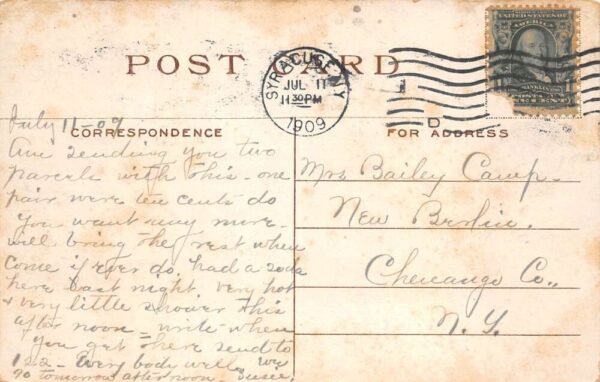 POST CARD
SYRACUSE, N.Y.
JUL 11
11 30 PM
1909
D
UNITED STATES OF
AMERICA
FRANKLIN
CORRESPONDENCE
FOR ADDRESS
July 11-09
Am sending you two
parcels with this - one
pair were ten cents do
you want any more -
will bring the rest when
come if ever do. had a soda
here last night very hot
& very little shower this
after noon - write when
you get there send to
122 - Every body well
go tomorrow after noon. Susie
Mrs Bailey Camp -
New Berlin.
Chenango Co.,
N. Y.